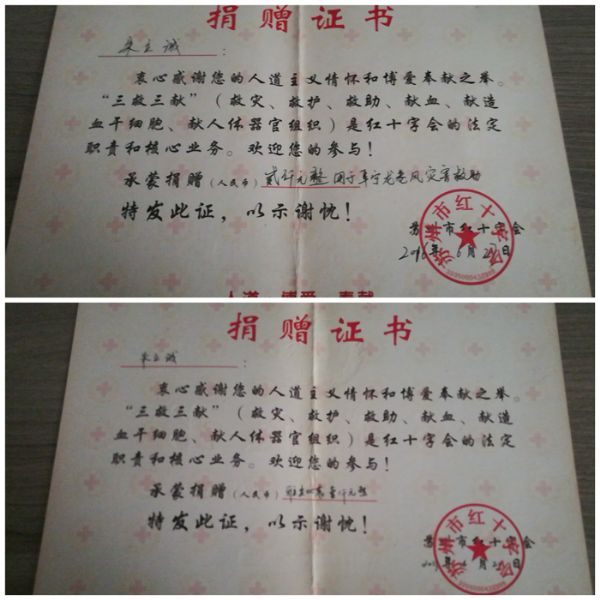 捐赠证书
朱立诚：
衷心感谢您的人道主义情怀和博爱奉献之举。
“三救三献”（救灾、救护、救助、献血、献造
血干细胞、献人体器官组织）是红十字会的法定
职责和核心业务。欢迎您的参与！
承蒙捐赠（人民币）贰仟元整 用于阜宁龙卷风灾害救助
特发此证，以示谢忱！
苏州市红十字会
2016年6月27日
人道 博爱 奉献
捐赠证书
朱立诚：
衷心感谢您的人道主义情怀和博爱奉献之举。
“三救三献”（救灾、救护、救助、献血、献造
血干细胞、献人体器官组织）是红十字会的法定
职责和核心业务。欢迎您的参与！
承蒙捐赠（人民币）仟元整
特发此证，以示谢忱！
苏州市红十字会